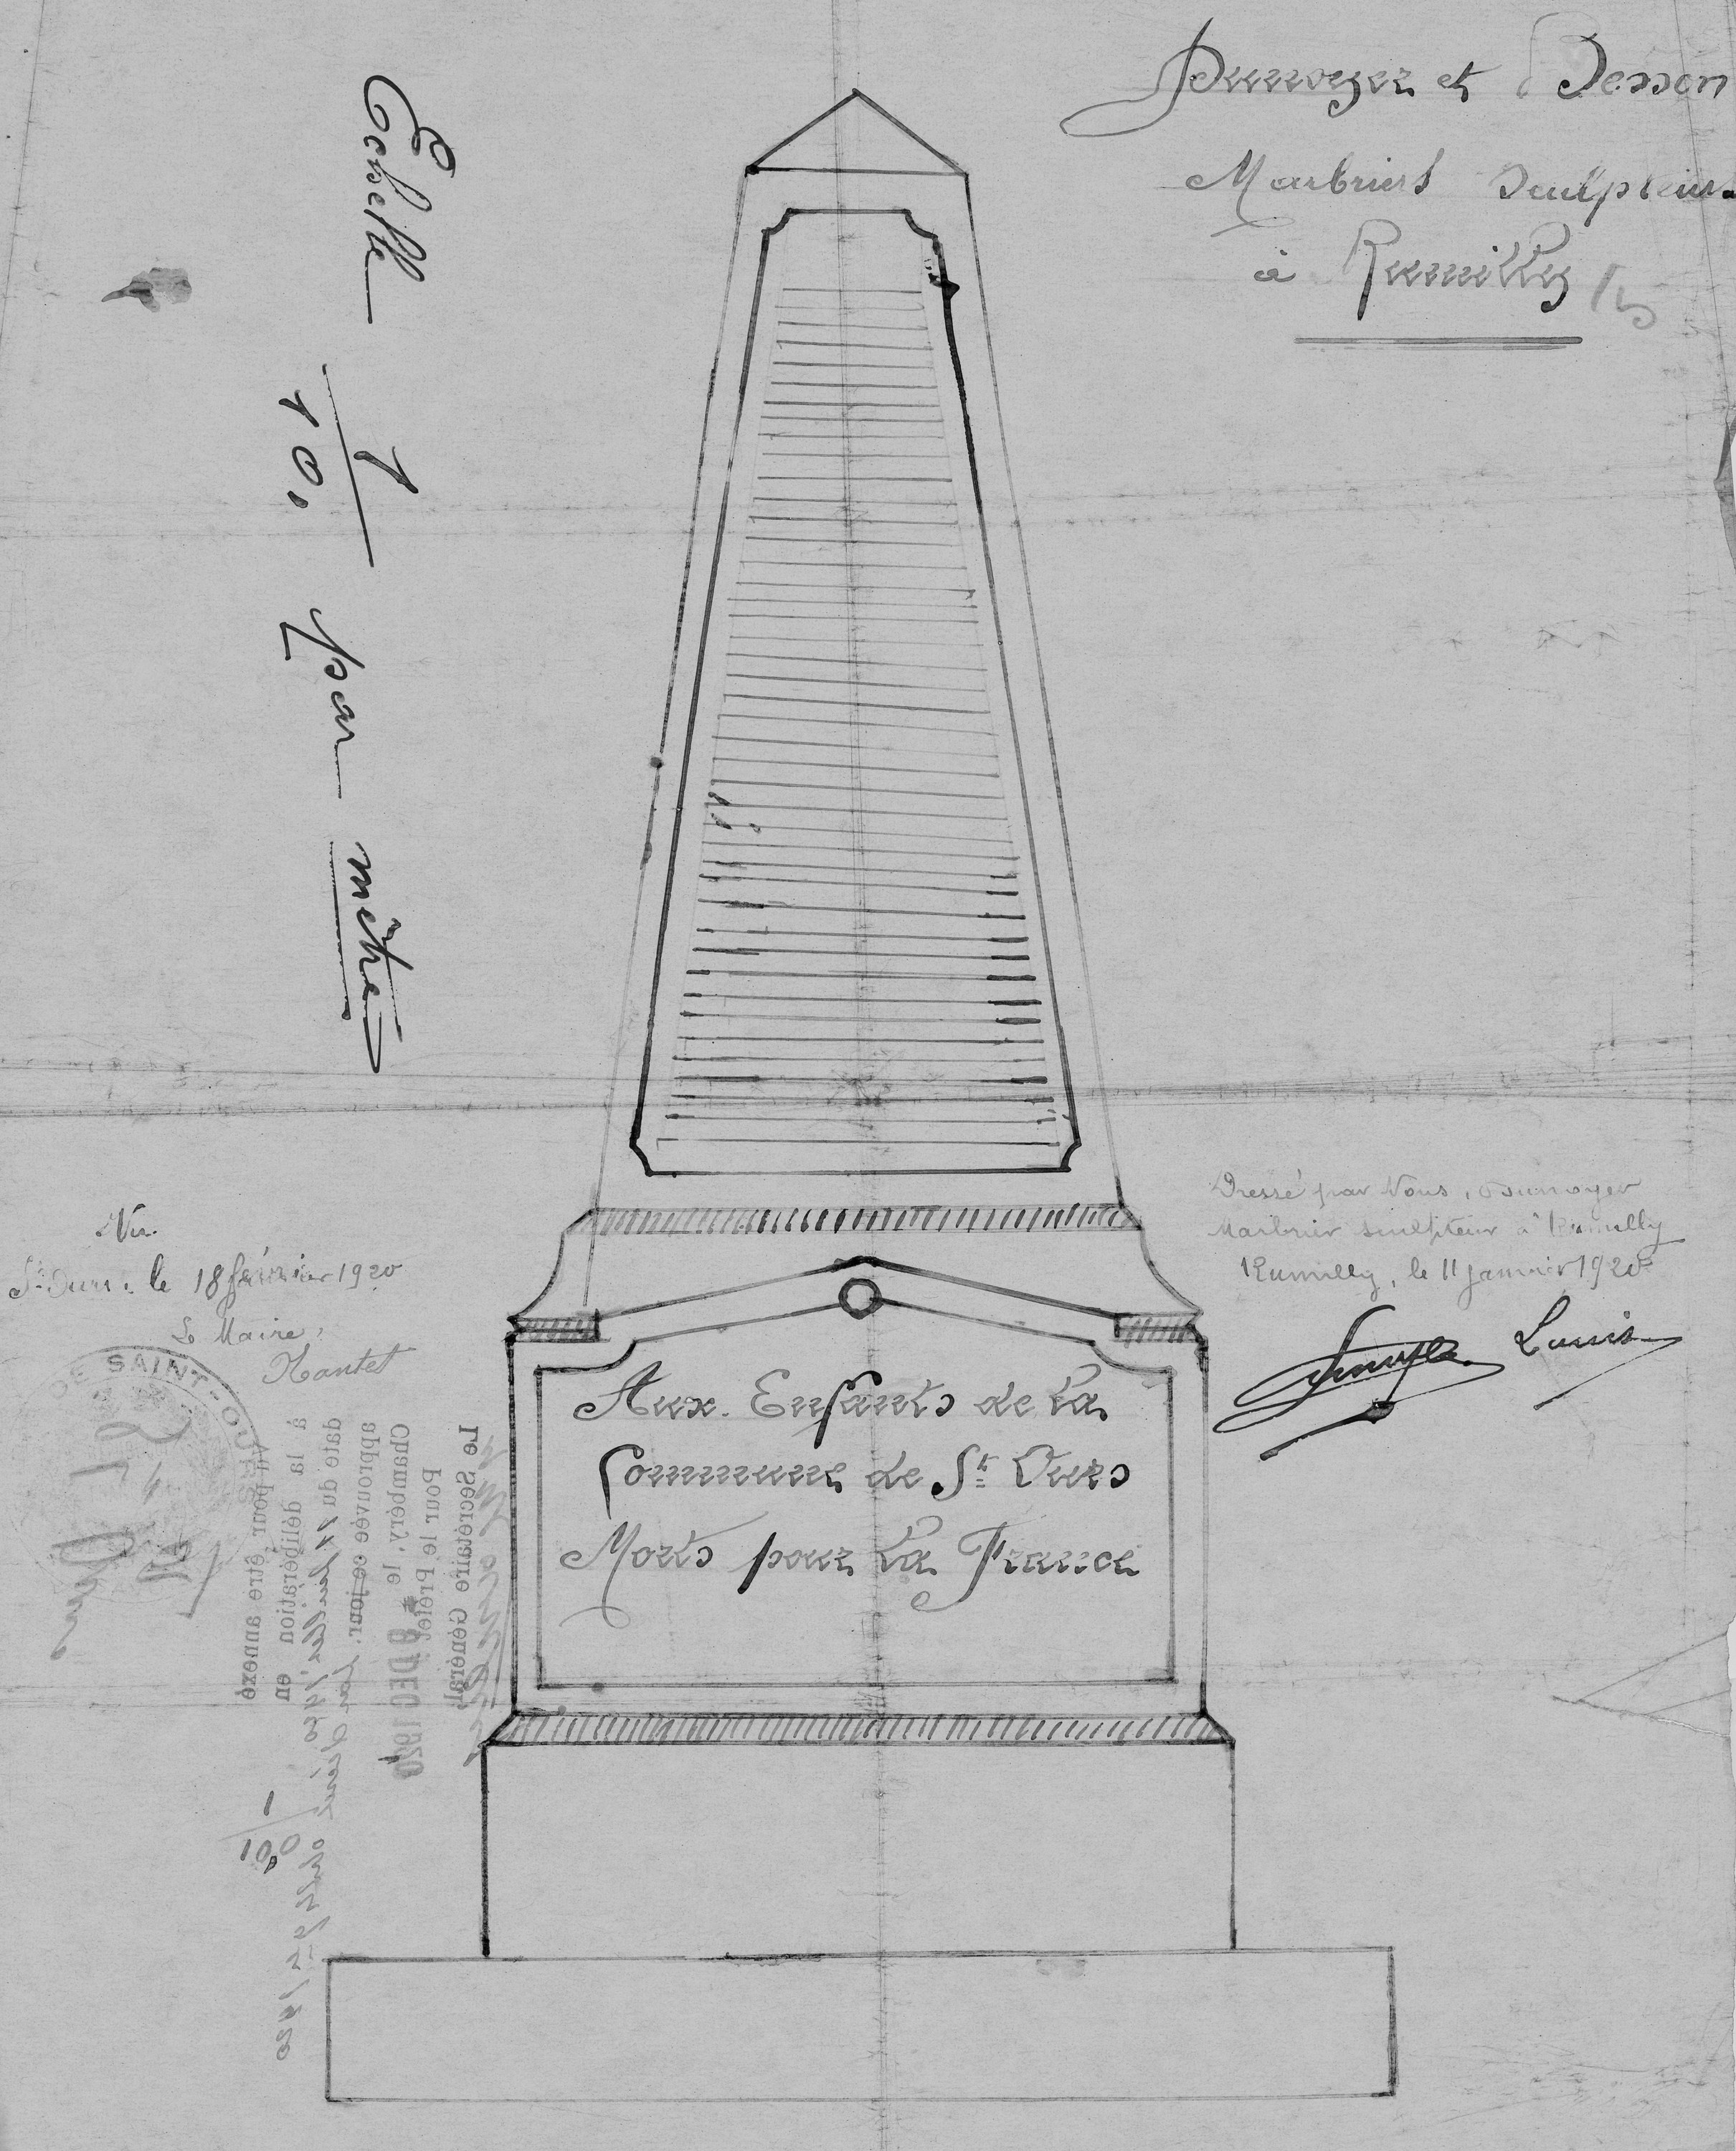 Dunoyer et Besson
Marbriers Sculpteurs
à Rumilly
Echelle 1/10. par mètre
Vu
St Ours, le 18 février 1920
Le Maire,
DE SAINT-OURS
Dressé par Nous, Dunoyer
Marbrier sculpteur à Rumilly
Rumilly, le 11 janvier 1920
Louis
Aux Enfants de la
Commune de St Ours
Morts pour la France
Vu pour être annexé
à la délibération en
date du
approuvée ce jour.
Chambéry, le 8 DEC 1920
Pour le Préfet
Le Secrétaire Général,
1/10